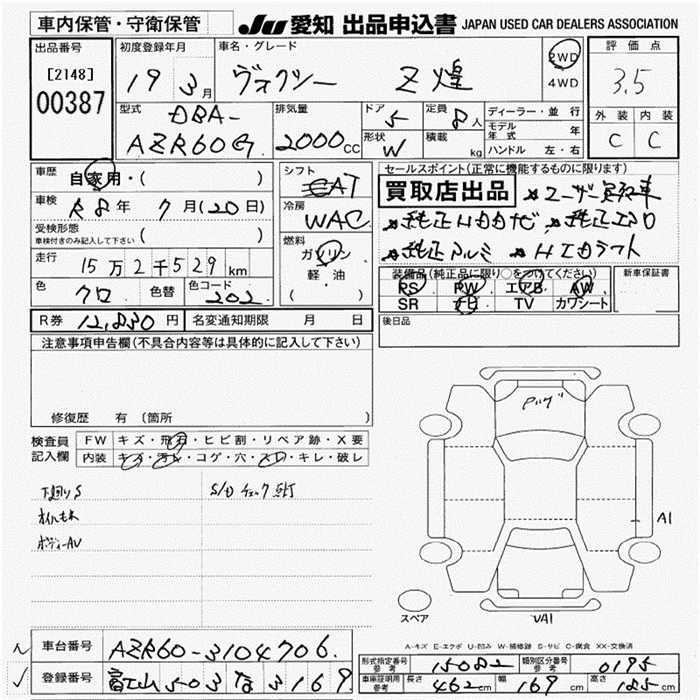 車内保管・守衛保管 JU 愛知 出品申込書 JAPAN USED CAR DEALERS ASSOCIATION
出品番号 初度登録年月 車名・グレード 2WD 評価点
[2148] 19 3月 ヴォクシー Z煌 4WD 3.5
00387 型式 DBA- 排気量 ドア 5 定員 8人 ディーラー・並行 外装 内装
AZR60G 2000CC 形状 W 積載 kg モデル年式 年 C C
ハンドル 左・右
車歴 自家用・( ) シフト AT セールスポイント(正常に機能するものに限ります)
車検 R8年 7月(20日) 冷房 WAC 買取店出品 *ユーザー買取車
受検形態 車検付きのみ記入して下さい ( ) *純正HDDナビ *純正エアロ
走行 15万2千529km 燃料 ガソリン *純正アルミ *HIDライト
軽・油
( )
装備品(純正品に限り○をつけてください) 新車保証書
色 クロ 色替 色コード 202 PS PW エアB AW
SR ナビ TV カワシート
R券 12,830円 名変通知期限 月 日 後日品
注意事項申告欄(不具合内容等は具体的に記入して下さい)
修復歴 有 [箇所
検査員記入欄 FW キズ・飛石・ヒビ割・リペア跡・X要
内装 キズ・汚れ・コゲ・穴・スレ・キレ・破レ
下廻りS S/Bチェック点灯
オイルもれ
ボディーAV
A1
スペア VA1
A-キズ E-エクボ U-凹み W-補修跡 S-サビ C-腐食 XX-交換済
車台番号 AZR60-3104706.
形式指定番号 参考 15082 類別区分番号 参考 0195
登録番号 富山 503 な 3169
車庫証明用 参考 長さ 462cm 幅 169cm 高さ 185cm